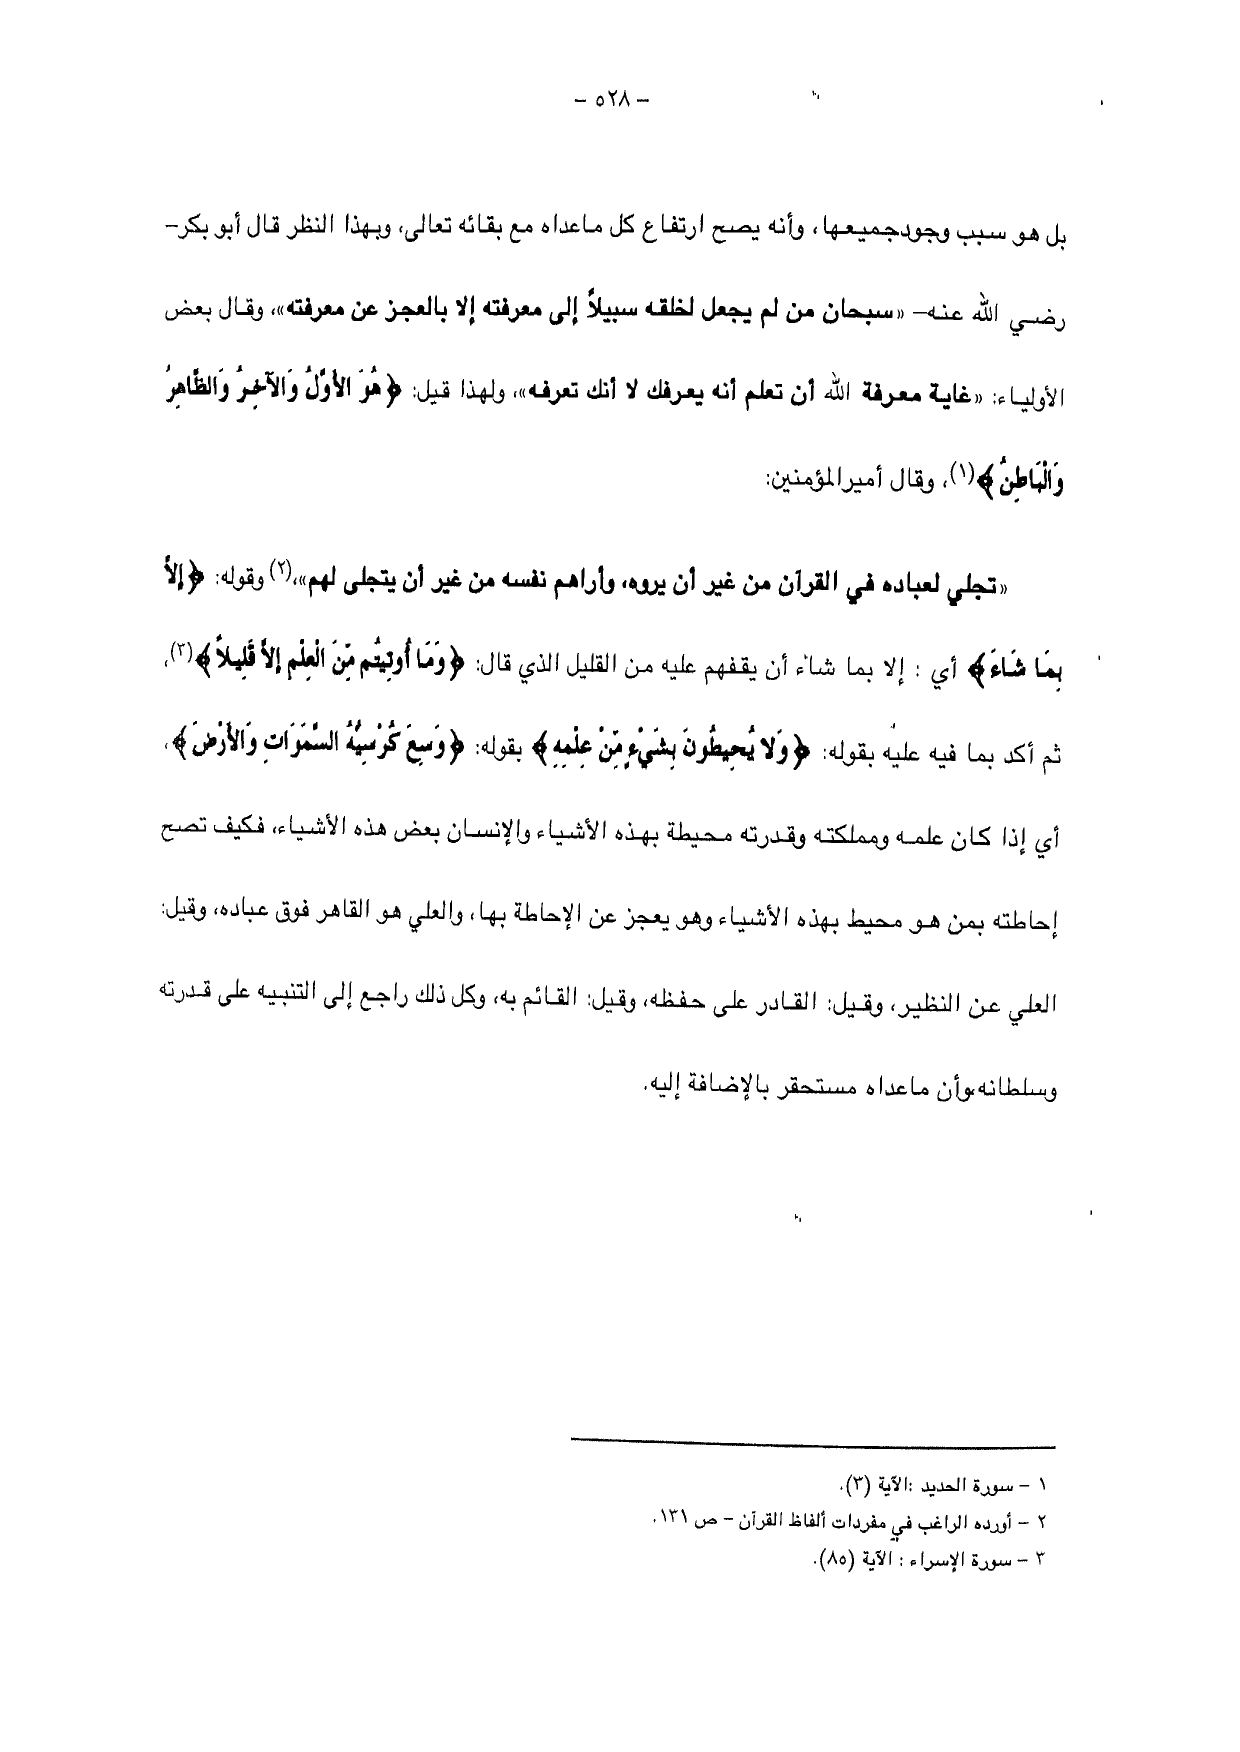 – ٥٢٨ –
بل هو سبب وجودجميعها، وأنه يصح ارتفاع كل ماعداه مع بقائه تعالى، وبهذا النظر قال أبو بكر–
رضي الله عنه– «سبحان من لم يجعل لخلقه سبيلاً إلى معرفته إلا بالعجز عن معرفته»، وقال بعض
الأولياء: «غاية معرفة الله أن تعلم أنه يعرفك لا أنك تعرفه»، ولهذا قيل: ﴿هُوَ الأَوَّلُ وَالآخِرُ وَالظَّاهِرُ
وَالْبَاطِنُ﴾(١)، وقال أميرالمؤمنين:
«تجلي لعباده في القرآن من غير أن يروه، وأراهم نفسه من غير أن يتجلى لهم»،(٢) وقوله: ﴿إلاَّ
بِمَا شَاءَ﴾ أي : إلا بما شاء أن يقفهم عليه من القليل الذي قال: ﴿وَمَا أُوتِيتُم مِّنَ الْعِلْمِ إلاَّ قَلِيلاً﴾(٣)،
ثم أكد بما فيه عليه بقوله: ﴿وَلا يُحِيطُونَ بِشَيْءٍ مِّنْ عِلْمِهِ﴾ بقوله: ﴿وَسِعَ كُرْسِيُّهُ السَّمَوَاتِ وَالأَرْضَ﴾،
أي إذا كان علمه ومملكته وقدرته محيطة بهذه الأشياء والإنسان بعض هذه الأشياء، فكيف تصح
إحاطته بمن هو محيط بهذه الأشياء وهو يعجز عن الإحاطة بها، والعلي هو القاهر فوق عباده، وقيل:
العلي عن النظير، وقيل: القادر على حفظه، وقيل: القائم به، وكل ذلك راجع إلى التنبيه على قدرته
وسلطانه،وأن ماعداه مستحقر بالإضافة إليه.
١ – سورة الحديد :الآية (٣).
٢ – أورده الراغب في مفردات ألفاظ القرآن – ص ١٣١.
٣ – سورة الإسراء : الآية (٨٥).